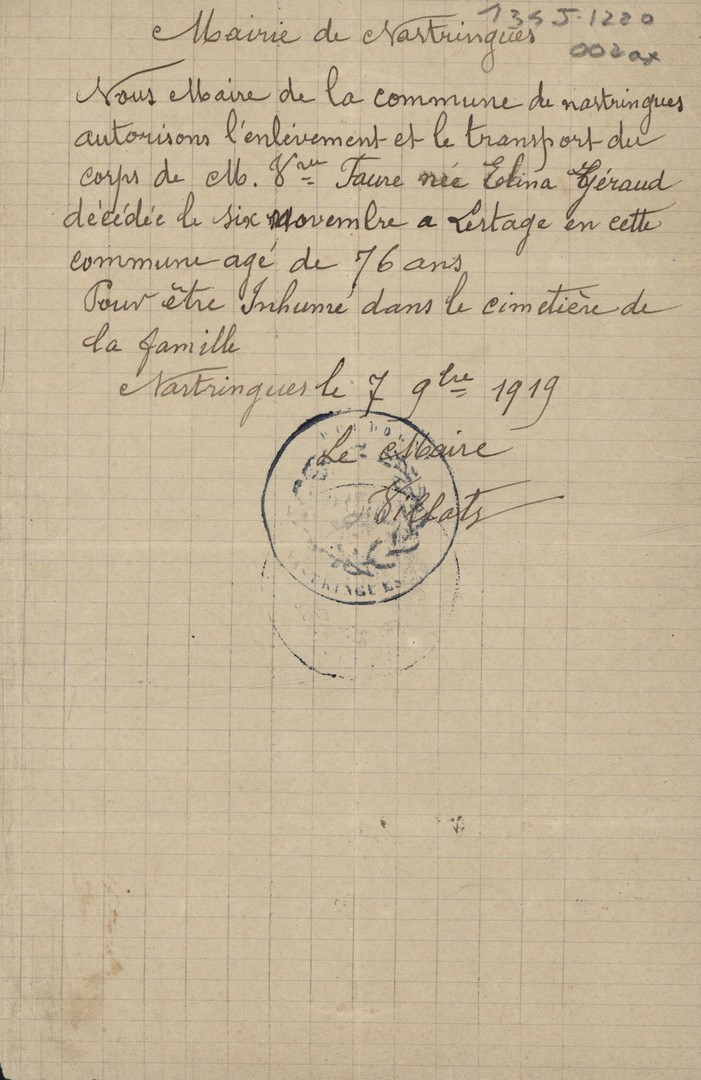 135 J-1220
002ax
Mairie de Nastringues
Nous Maire de la commune de nastringues
autorisons l'enlévement et le transport du
corps de M. Vve Faure née Elina Géraud
décédée le six Novembre a Lestage en cette
commune agé de 76 ans
Pour être Inhumé dans le cimetière de
la famille
Nastringues le 7 9bre 1919
Le Maire
NASTRINGUES